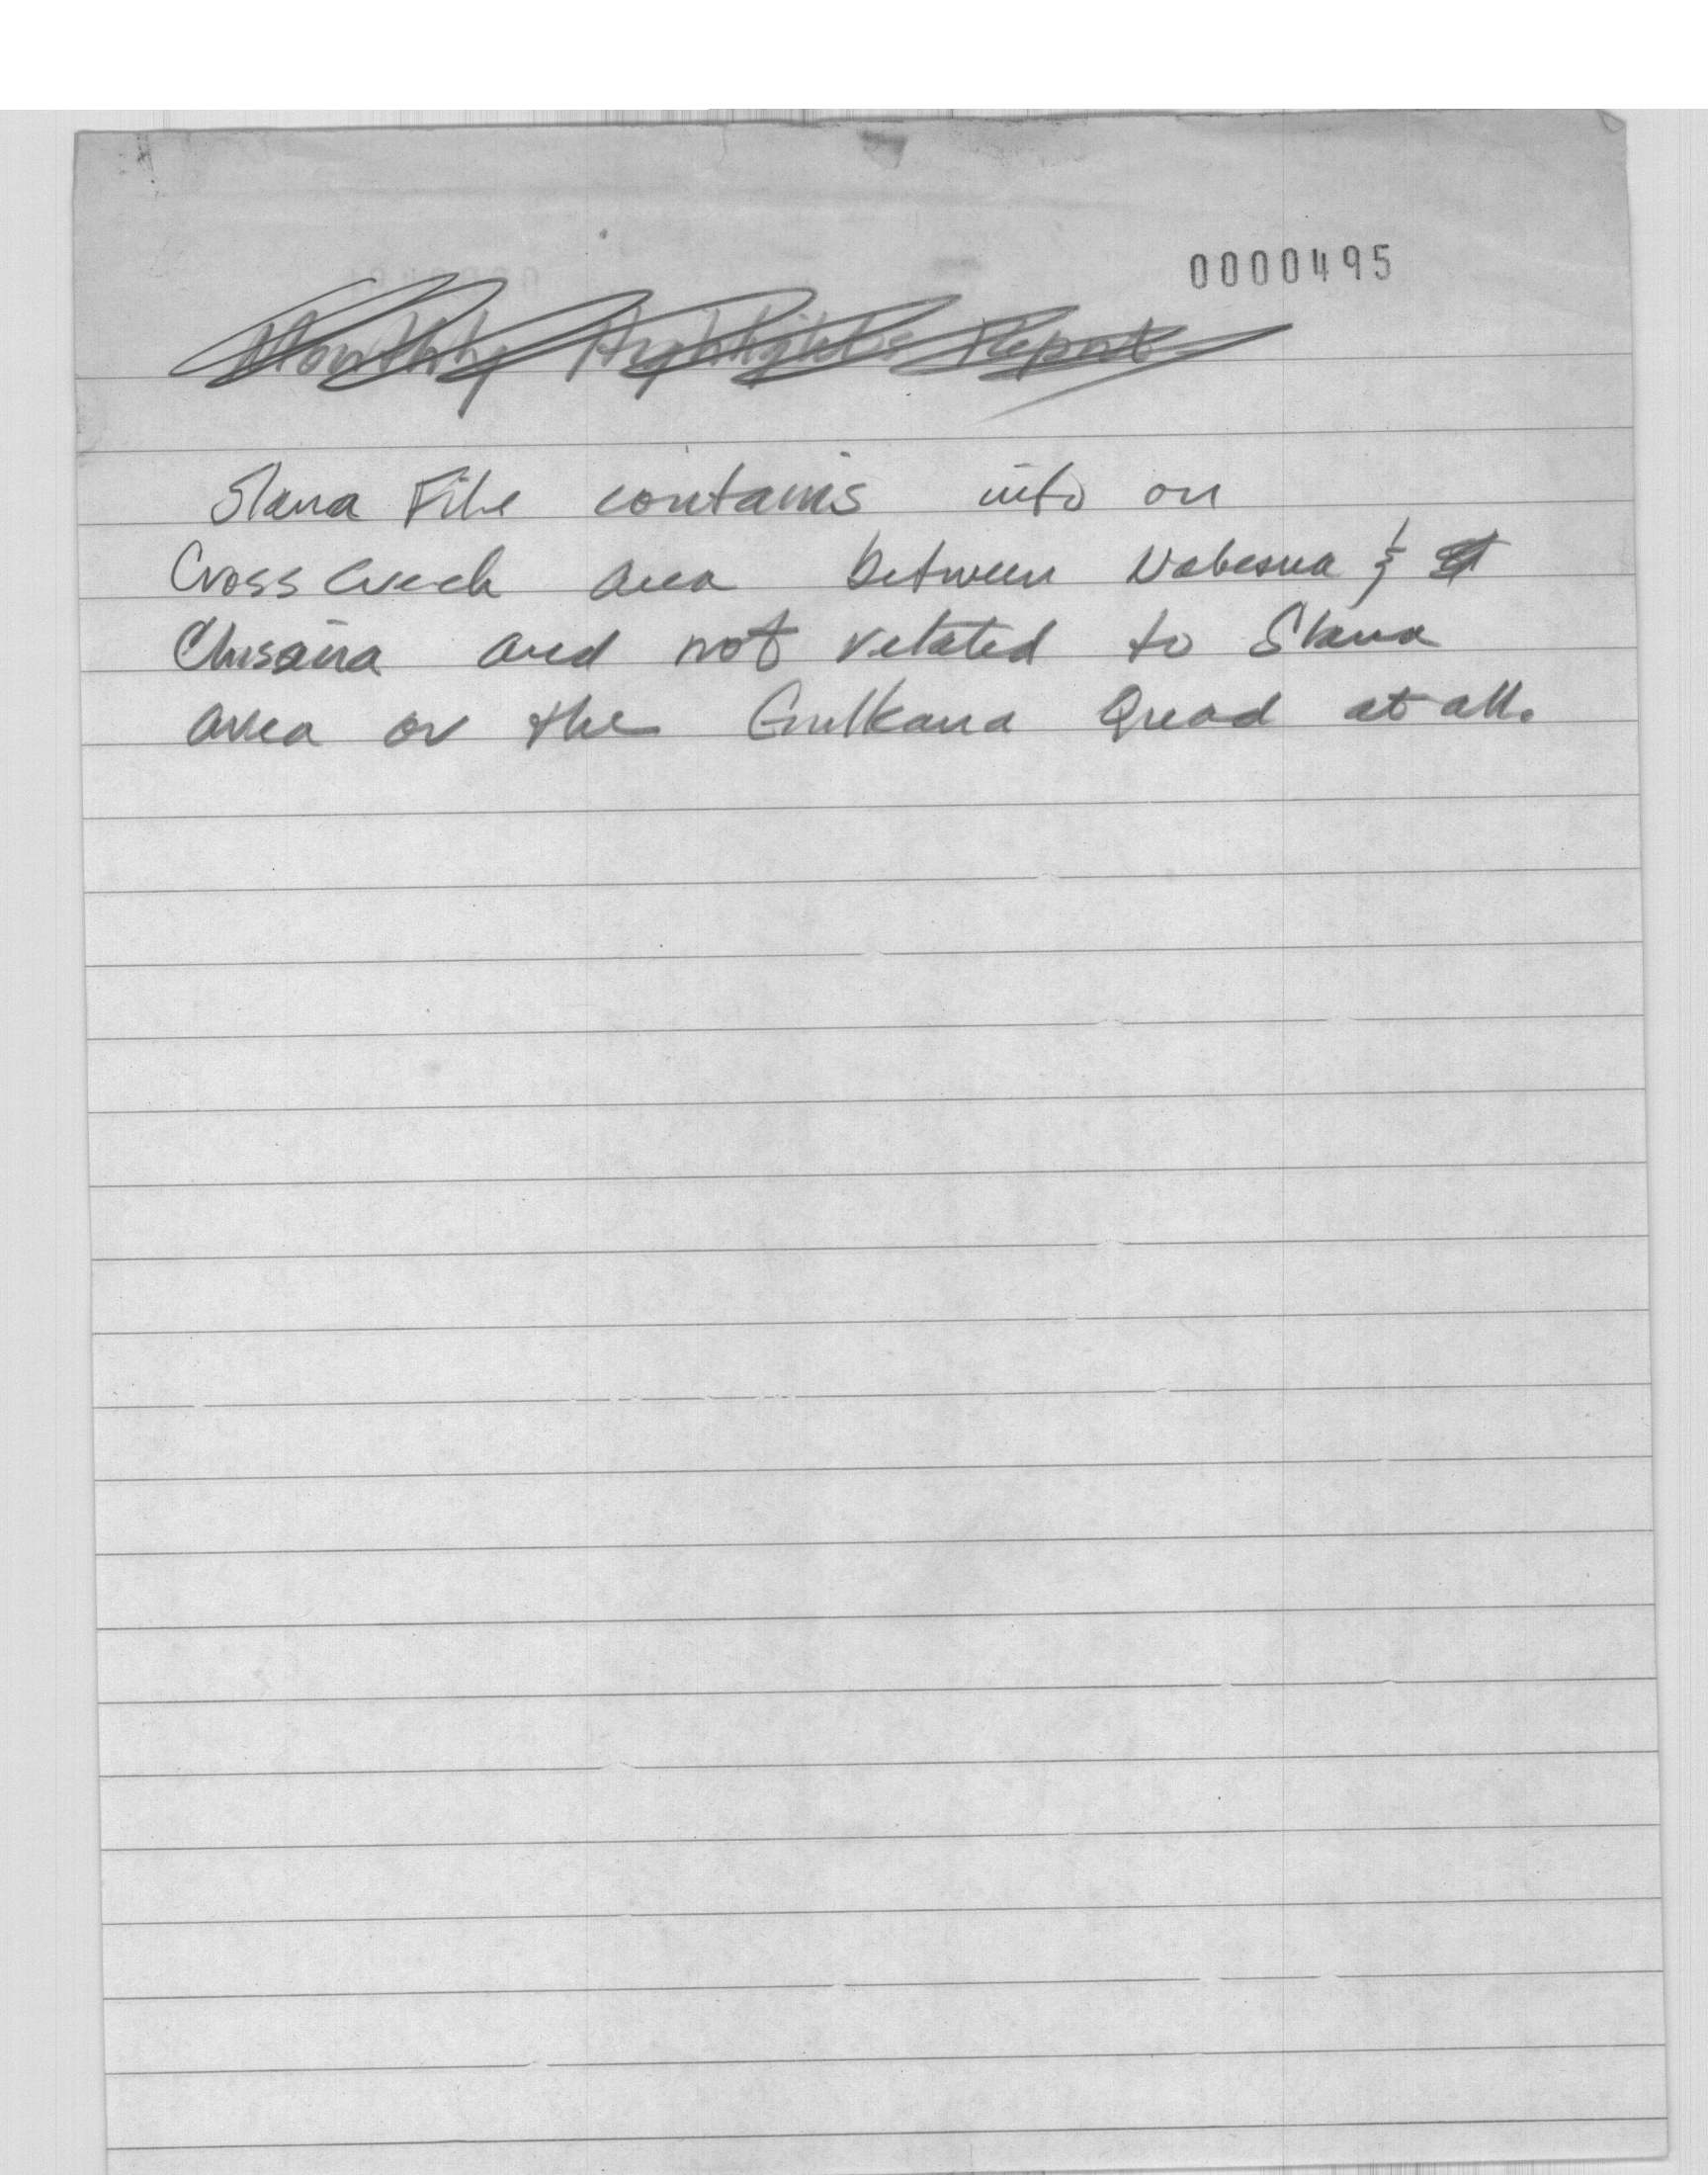 0000495
Monthly Highlights Report
Slana File contains info on
Cross Creek area between Nabesna &
Chisana and not related to Slana
area or the Gulkana Quad at all.